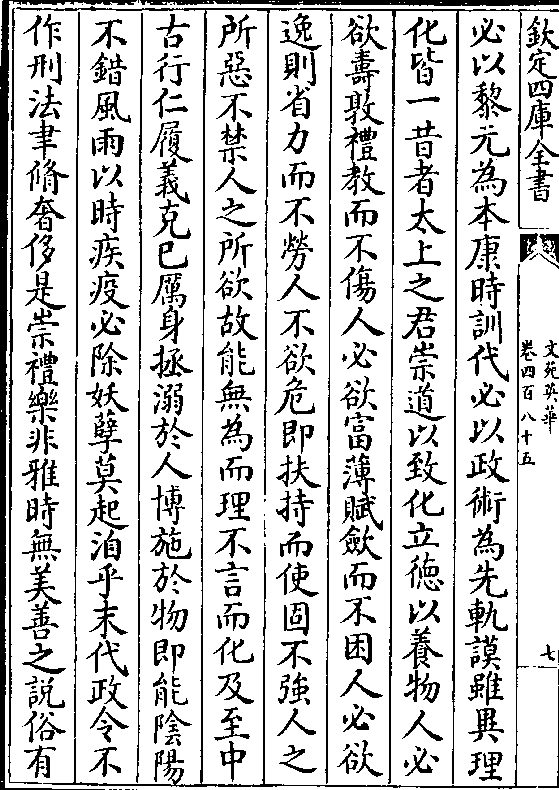 欽定四庫全書
文苑英華
卷四百八十五
七
必以黎元為本康時訓代必以政術為先軌謨雖異理
化皆一昔者太上之君崇道以致化立德以養物人必
欲壽敦禮教而不傷人必欲富薄賦斂而不困人必欲
逸則省力而不勞人不欲危即扶持而使固不強人之
所惡不禁人之所欲故能無為而理不言而化及至中
古行仁履義克己厲身拯溺於人博施於物即能陰陽
不錯風雨以時疾疫必除妖孽莫起洎乎末代政令不
作刑法聿脩奢侈是崇禮樂非雅時無美善之說俗有